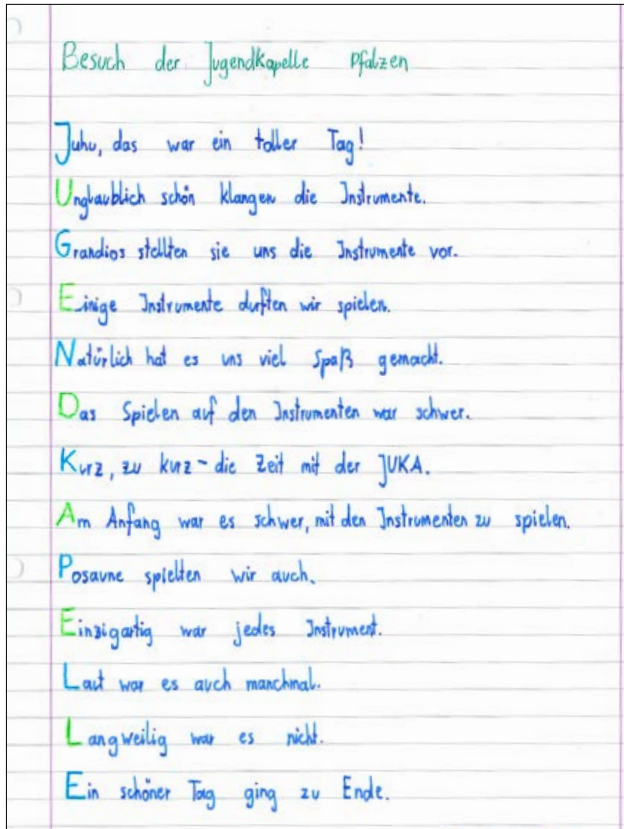 Besuch der Jugendkapelle Pfalzen
Juhu, das war ein toller Tag!
Unglaublich schön klangen die Instrumente.
Grandios stellten sie uns die Instrumente vor.
Einige Instrumente durften wir spielen.
Natürlich hat es uns viel Spaß gemacht.
Das Spielen auf den Instrumenten war schwer.
Kurz, zu kurz - die Zeit mit der JUKA.
Am Anfang war es schwer, mit den Instrumenten zu spielen.
Posaune spielten wir auch.
Einzigartig war jedes Instrument.
Laut war es auch manchmal.
Langweilig war es nicht.
Ein schöner Tag ging zu Ende.